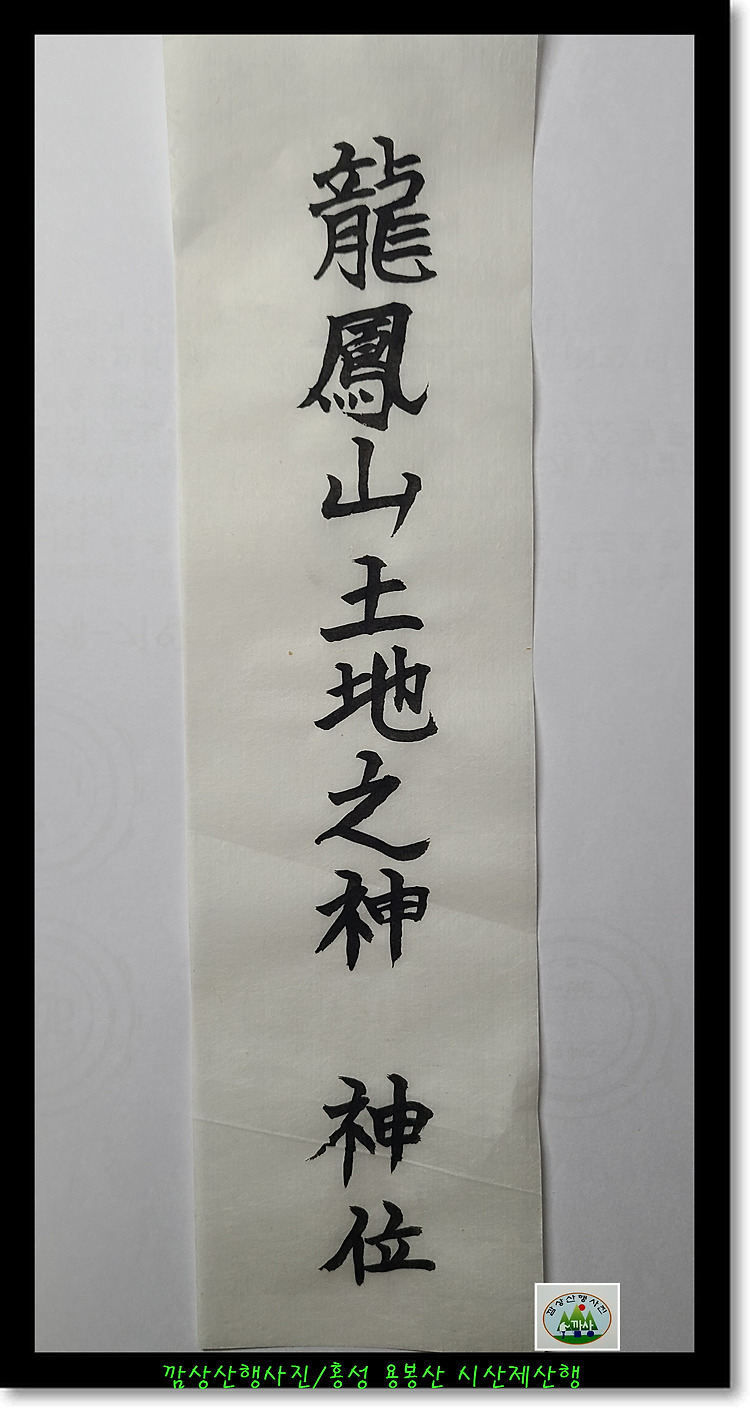 龍鳳山土地之神 神位
깜상산행사진
까사
깜상산행사진/홍성 용봉산 시산제산행